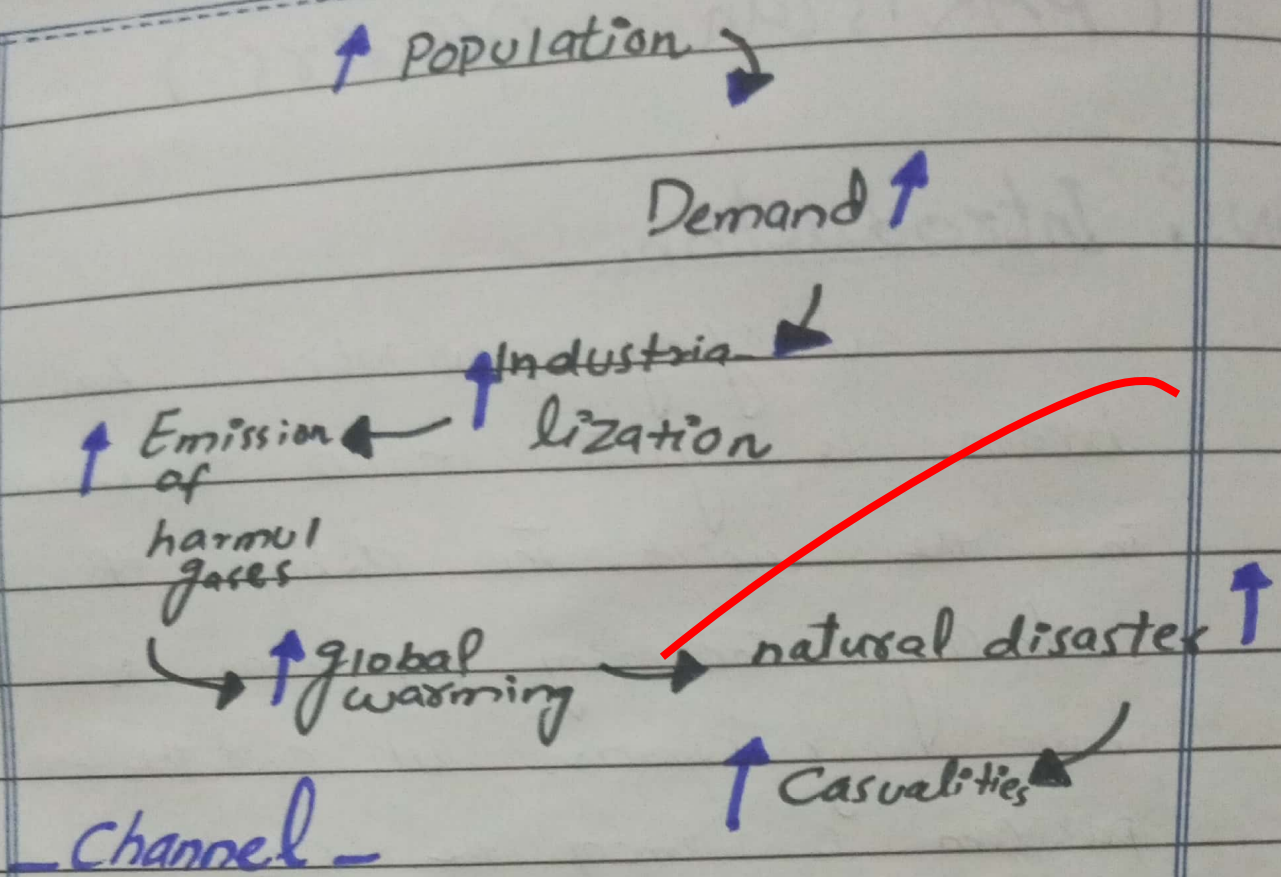 ↑ Population
Demand ↑
↑ Industria
lization
↑ Emission
of
harmul
gases
↑ global
warming
natural disaster ↑
↑ Casualities
- Channel -